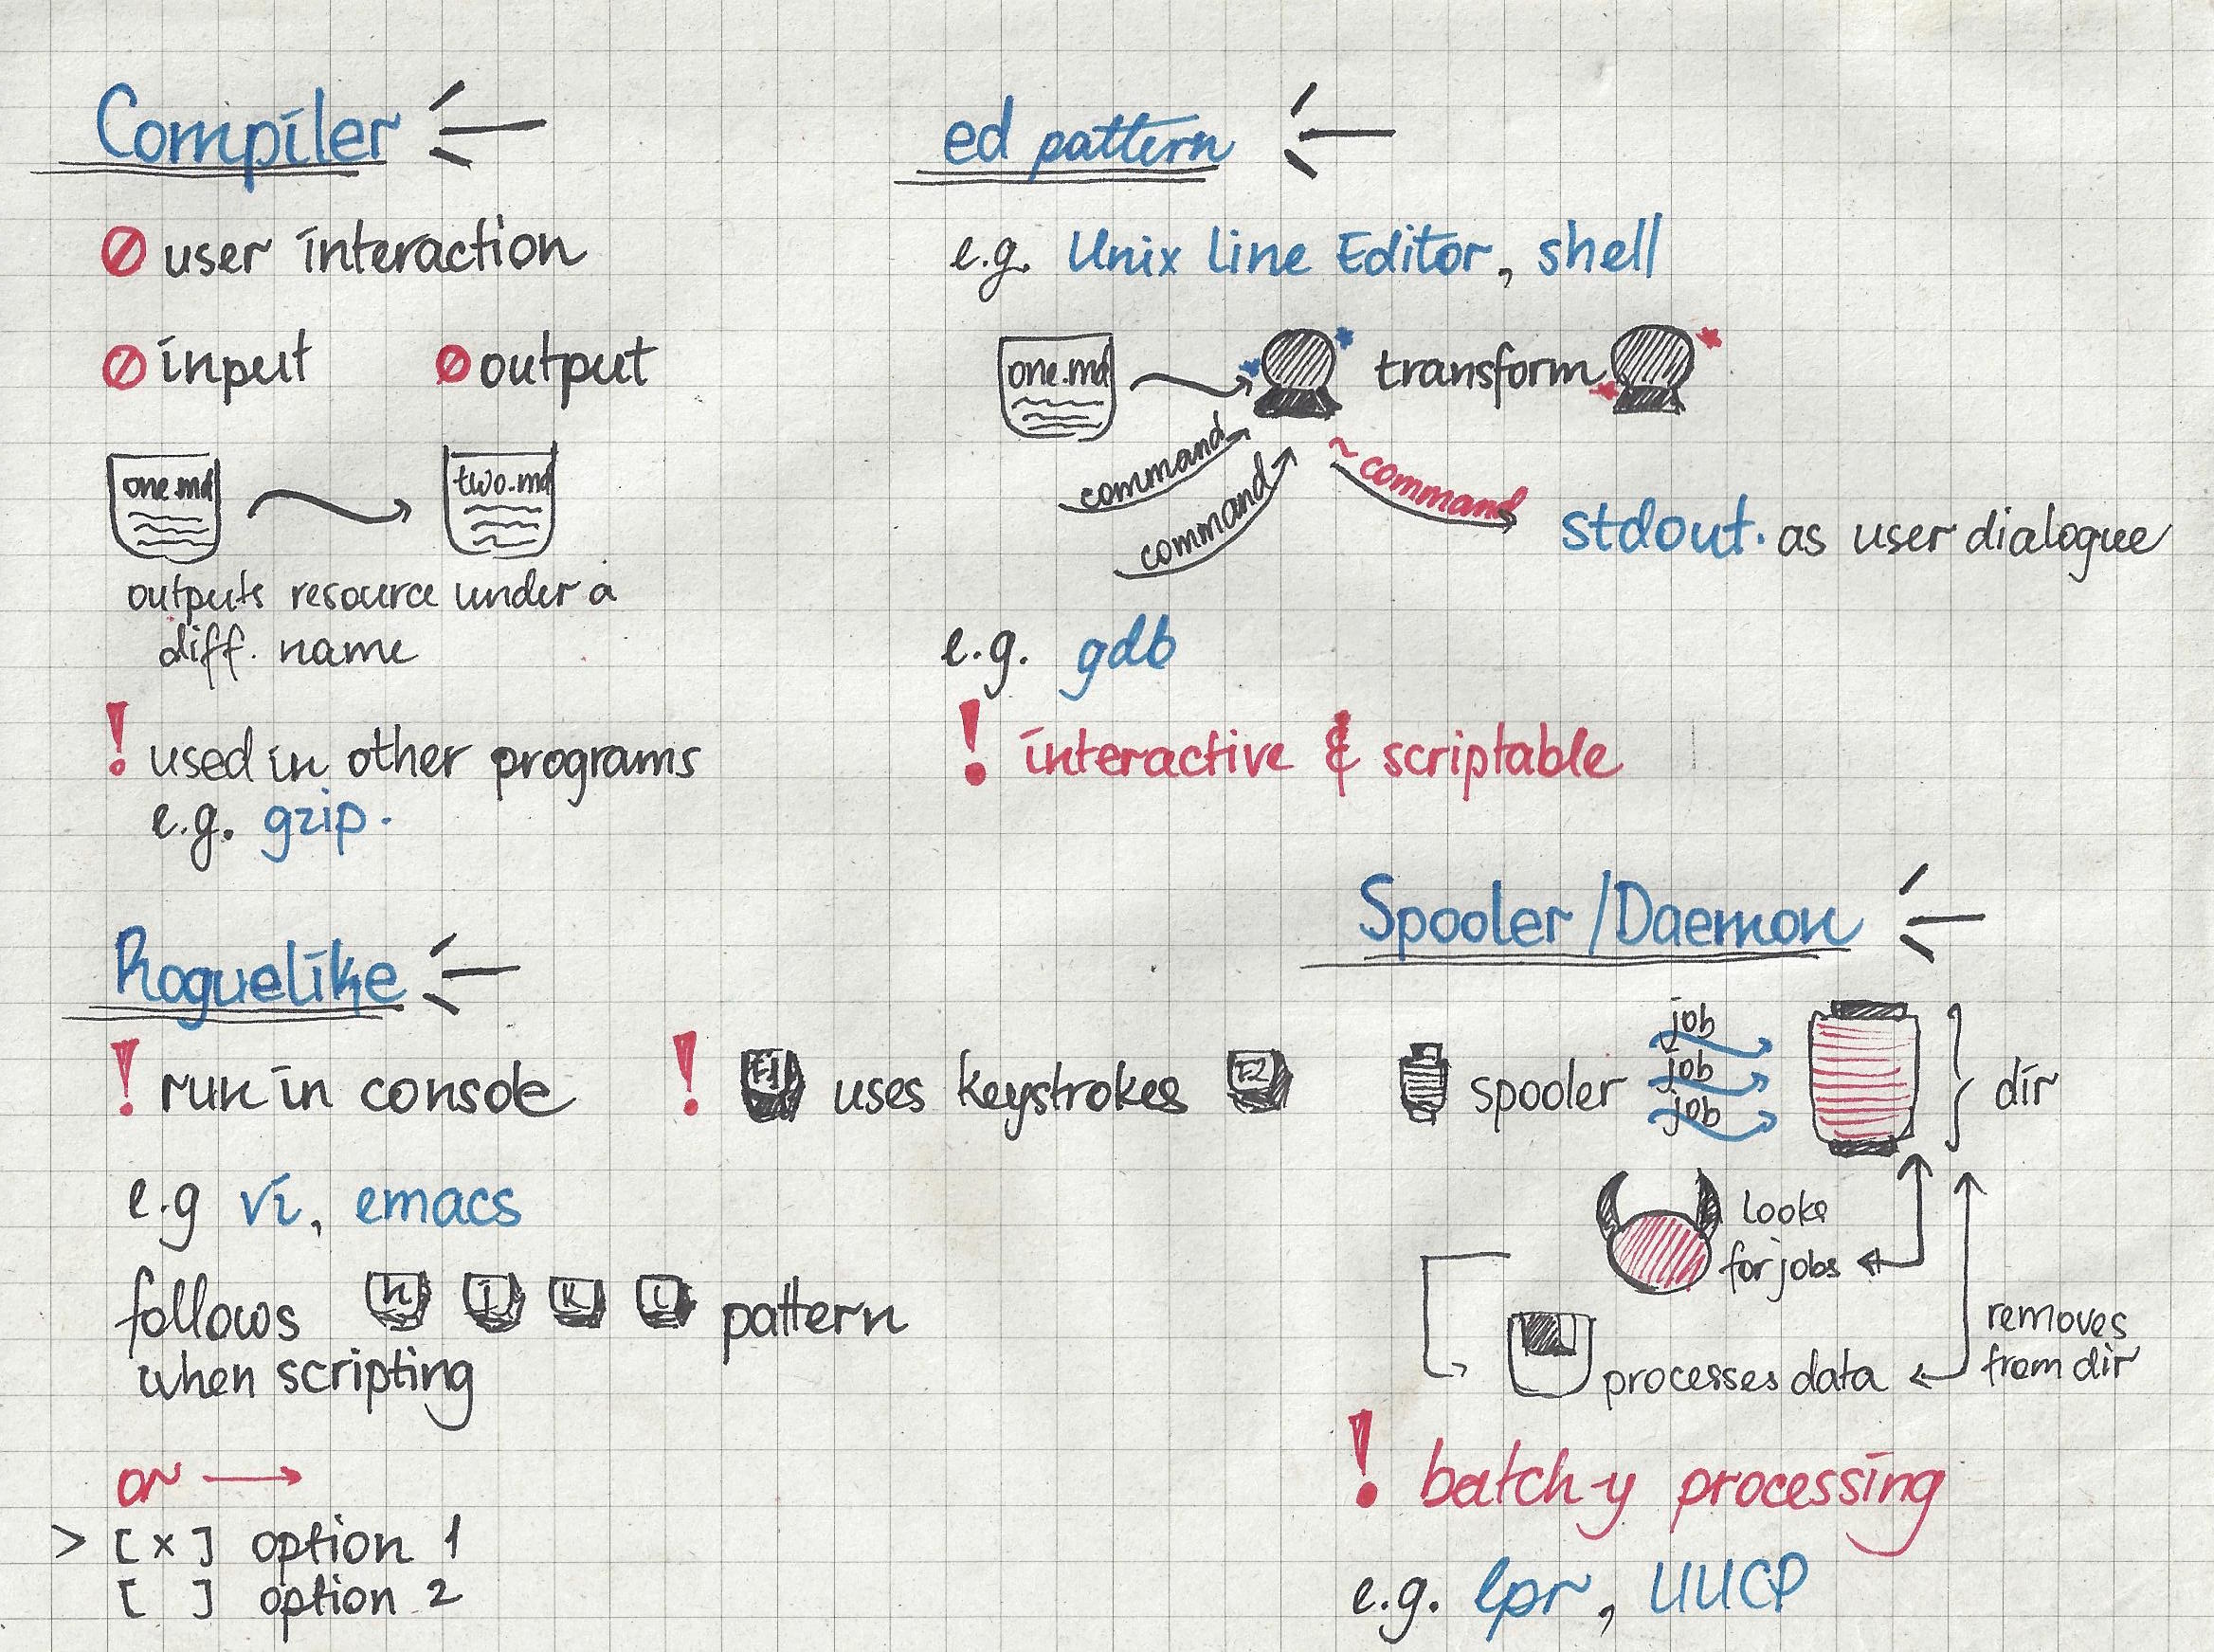 Compiler
user interaction
input output
one.md two.md
outputs resource under a
diff. name
! used in other programs
e.g. gzip.
ed pattern
e.g. Unix Line Editor, shell
one.md transform
command
command
~ command
stdout. as user dialogue
e.g. gdb
! interactive & scriptable
Roguelike
! run in console
! F1 uses keystrokes F2
e.g vi, emacs
follows h j k l pattern
when scripting
or →
> [x] option 1
[ ] option 2
Spooler/Daemon
spooler
job
job
job
dir
looks
for jobs
processes data
removes
from dir
! batch-y processing
e.g. lpr, UUCP